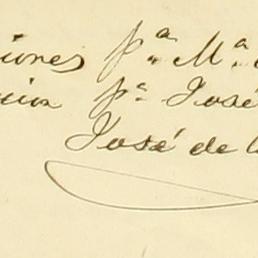 iones pª Mª
ion pª José
José de l